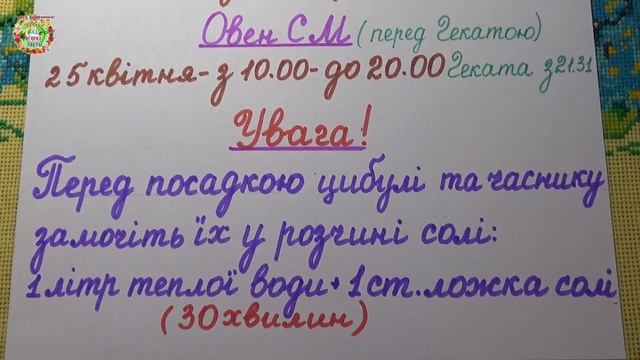 Овен СМ (перед Гекатою)
25 квітня - з 10.00 - до 20.00 Геката з 21.31
Увага!
Перед посадкою цибулі та часнику
замочіть їх у розчині солі:
1 літр теплої води + 1 ст. ложка солі
(30 хвилин)